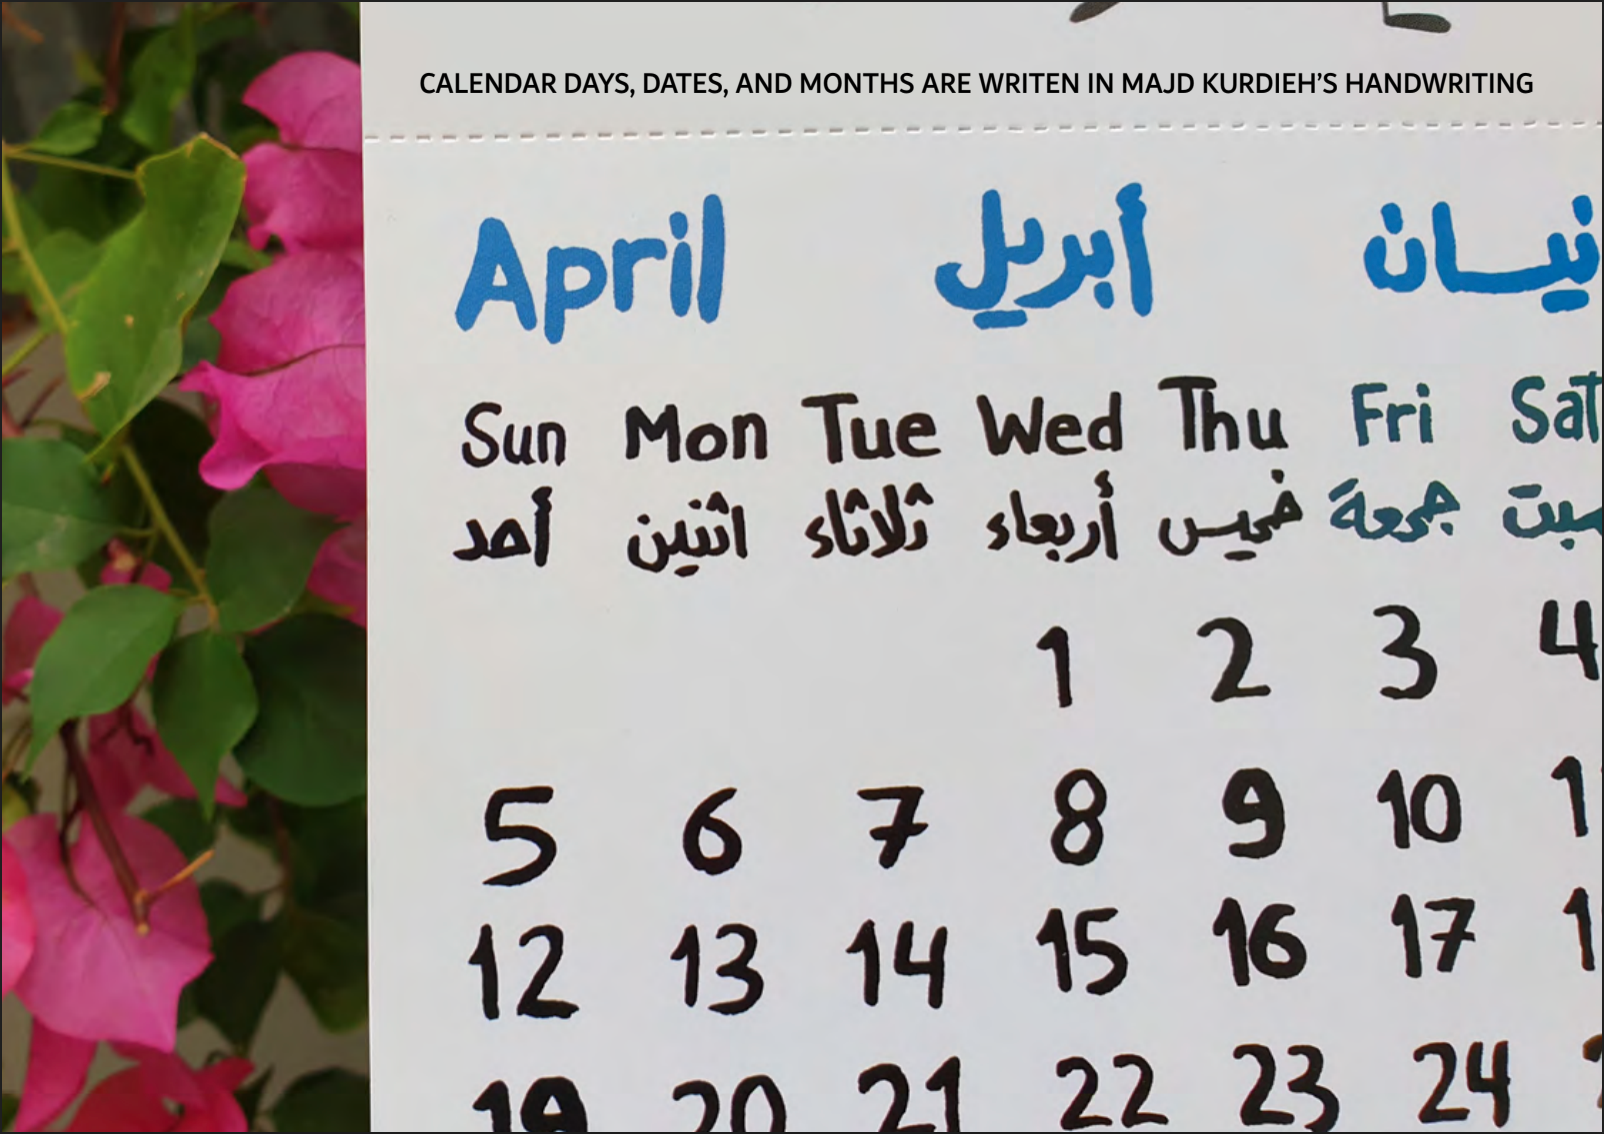 CALENDAR DAYS, DATES, AND MONTHS ARE WRITEN IN MAJD KURDIEH'S HANDWRITING
April أبريل نيسان
Sun Mon Tue Wed Thu Fri Sat
أحد اثنين ثلاثاء أربعاء خميس جمعة سبت
1 2 3 4
5 6 7 8 9 10 1
12 13 14 15 16 17 1
19 20 21 22 23 24